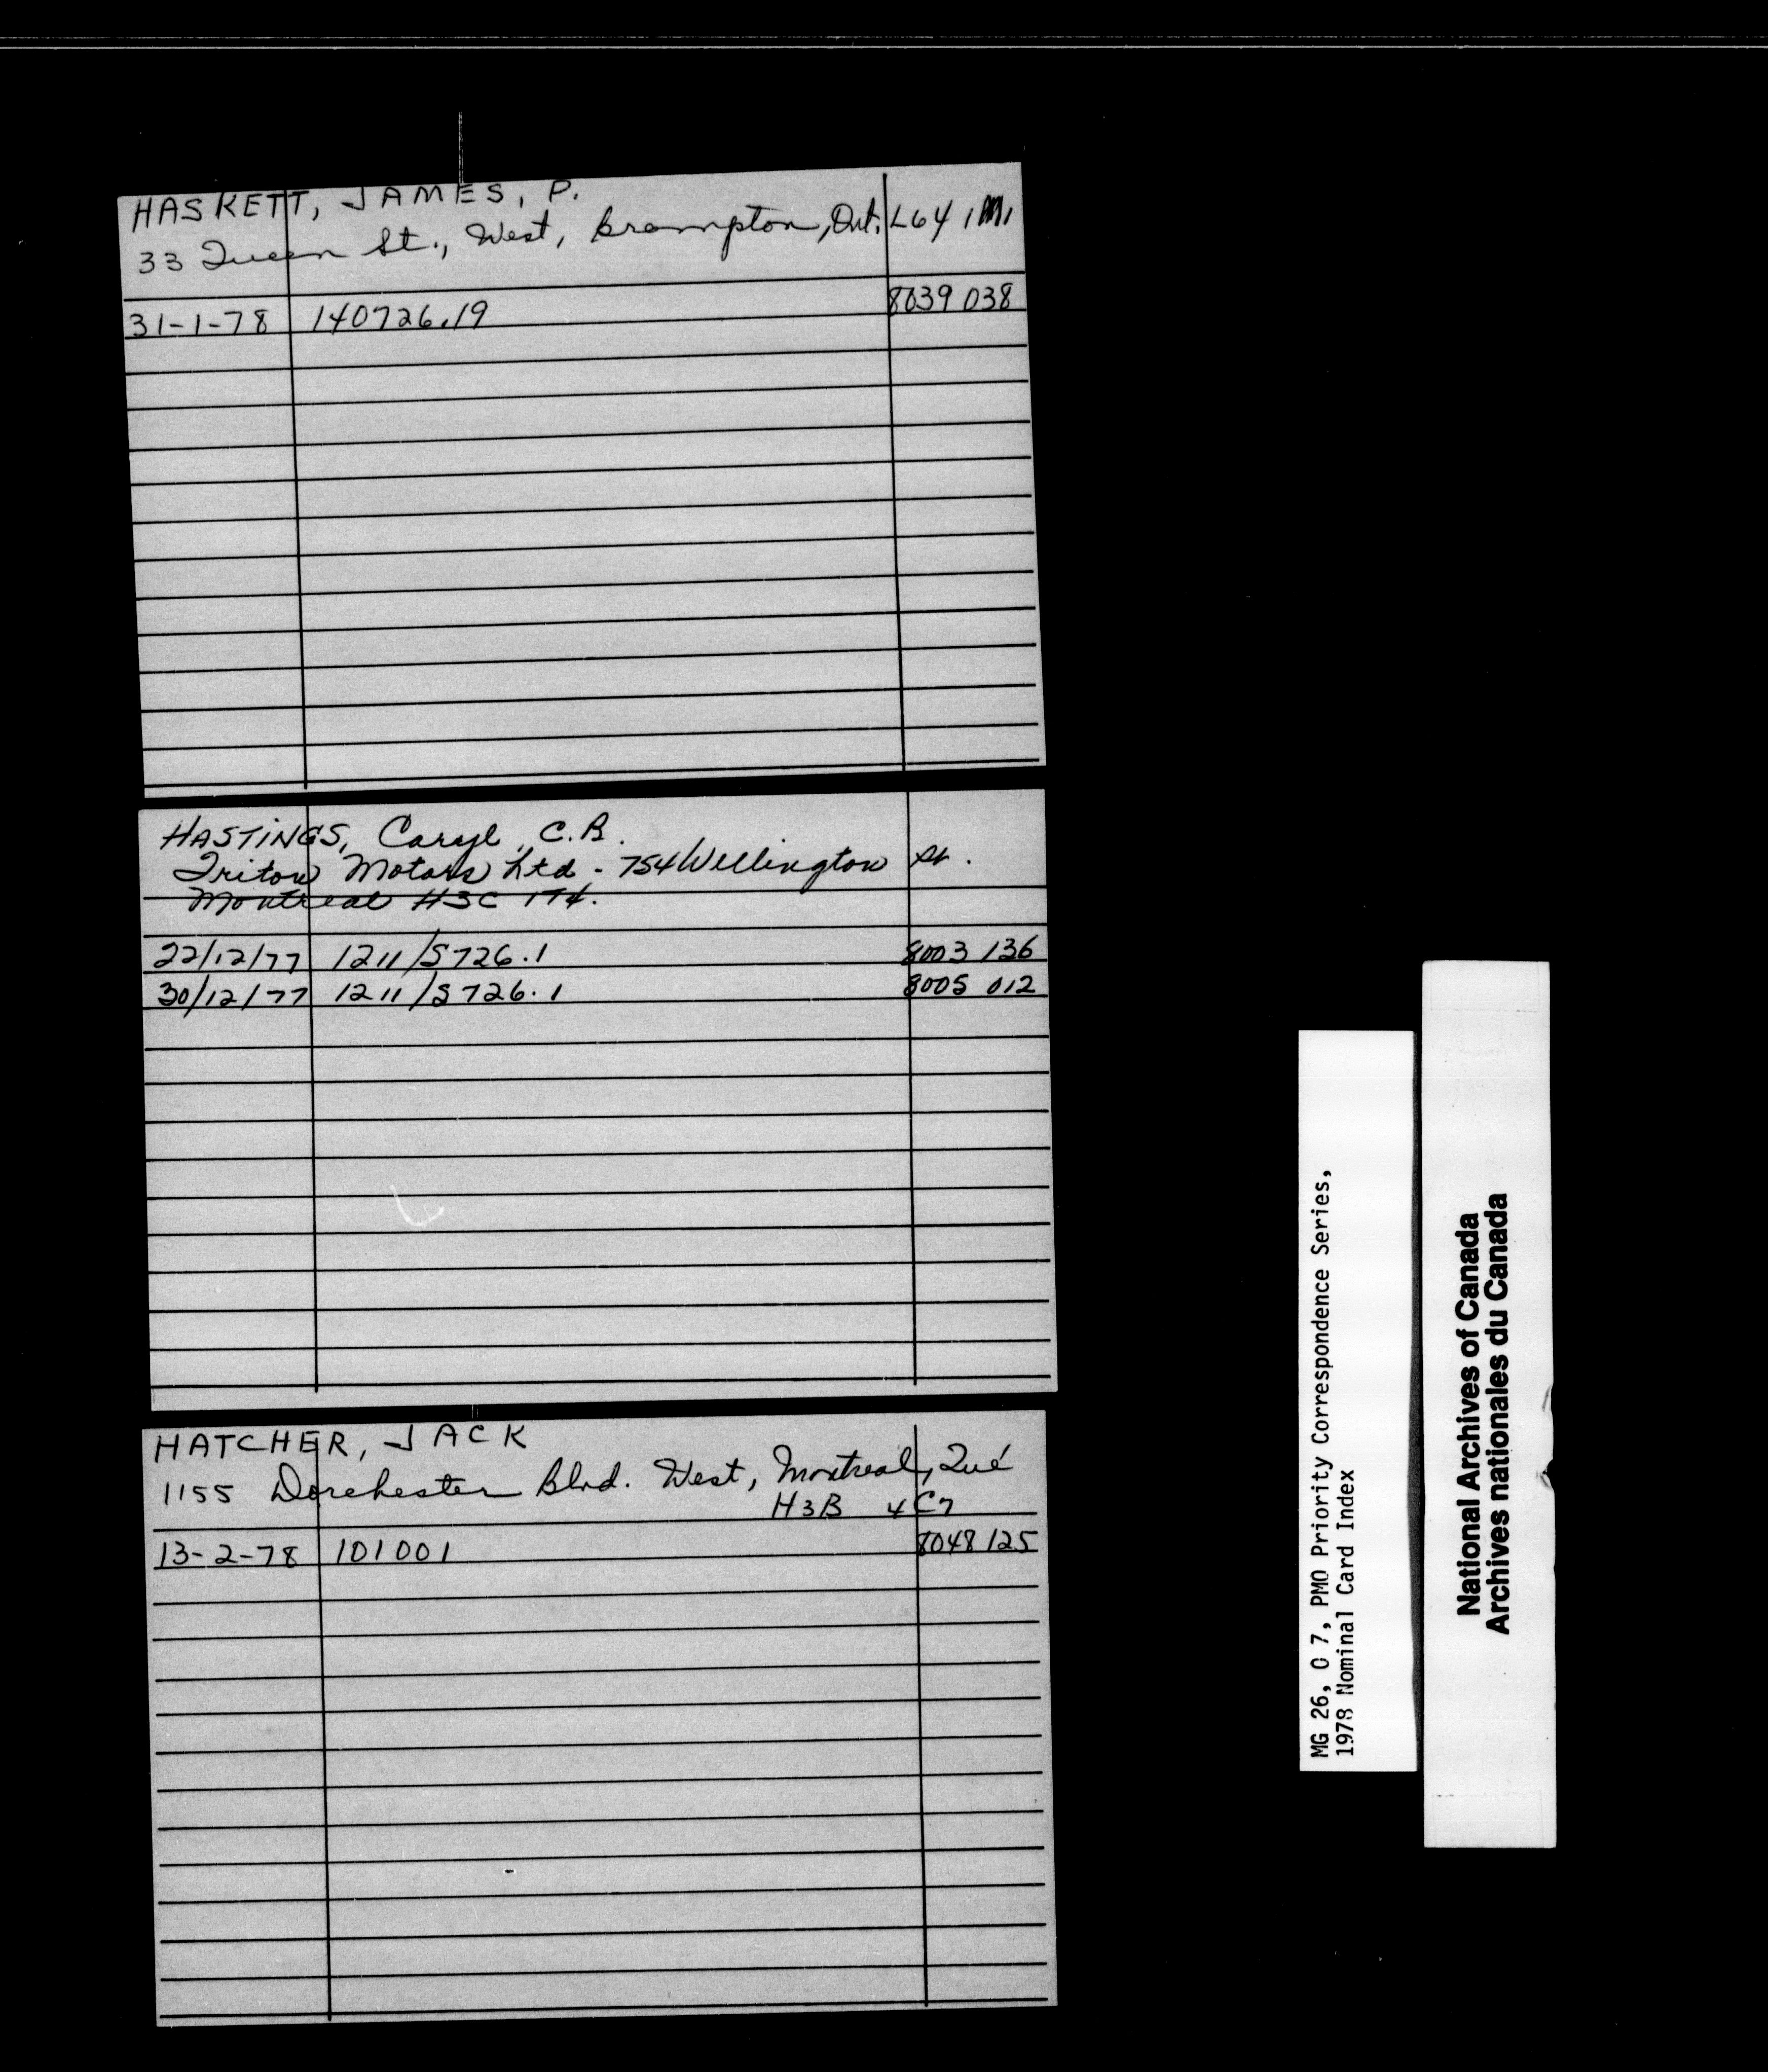 HASKETT, JAMES, P.
33 Queen St., West, Brampton, Ont. L6Y 1M1
31-1-78 140726.19 8039 038
HASTINGS, Caryl, C.B.
Triton Motors Ltd - 754 Wellington St.
Montreal H3C 1T4.
22/12/77 1211/S726.1 8003 136
30/12/77 1211/S726.1 8005 012
HATCHER, JACK
1155 Dorchester Blvd. West, Montreal, Qué
H3B 4C7
13-2-78 101001 8048 125
MG 26, O 7, PMO Priority Correspondence Series,
1978 Nominal Card Index
National Archives of Canada
Archives nationales du Canada